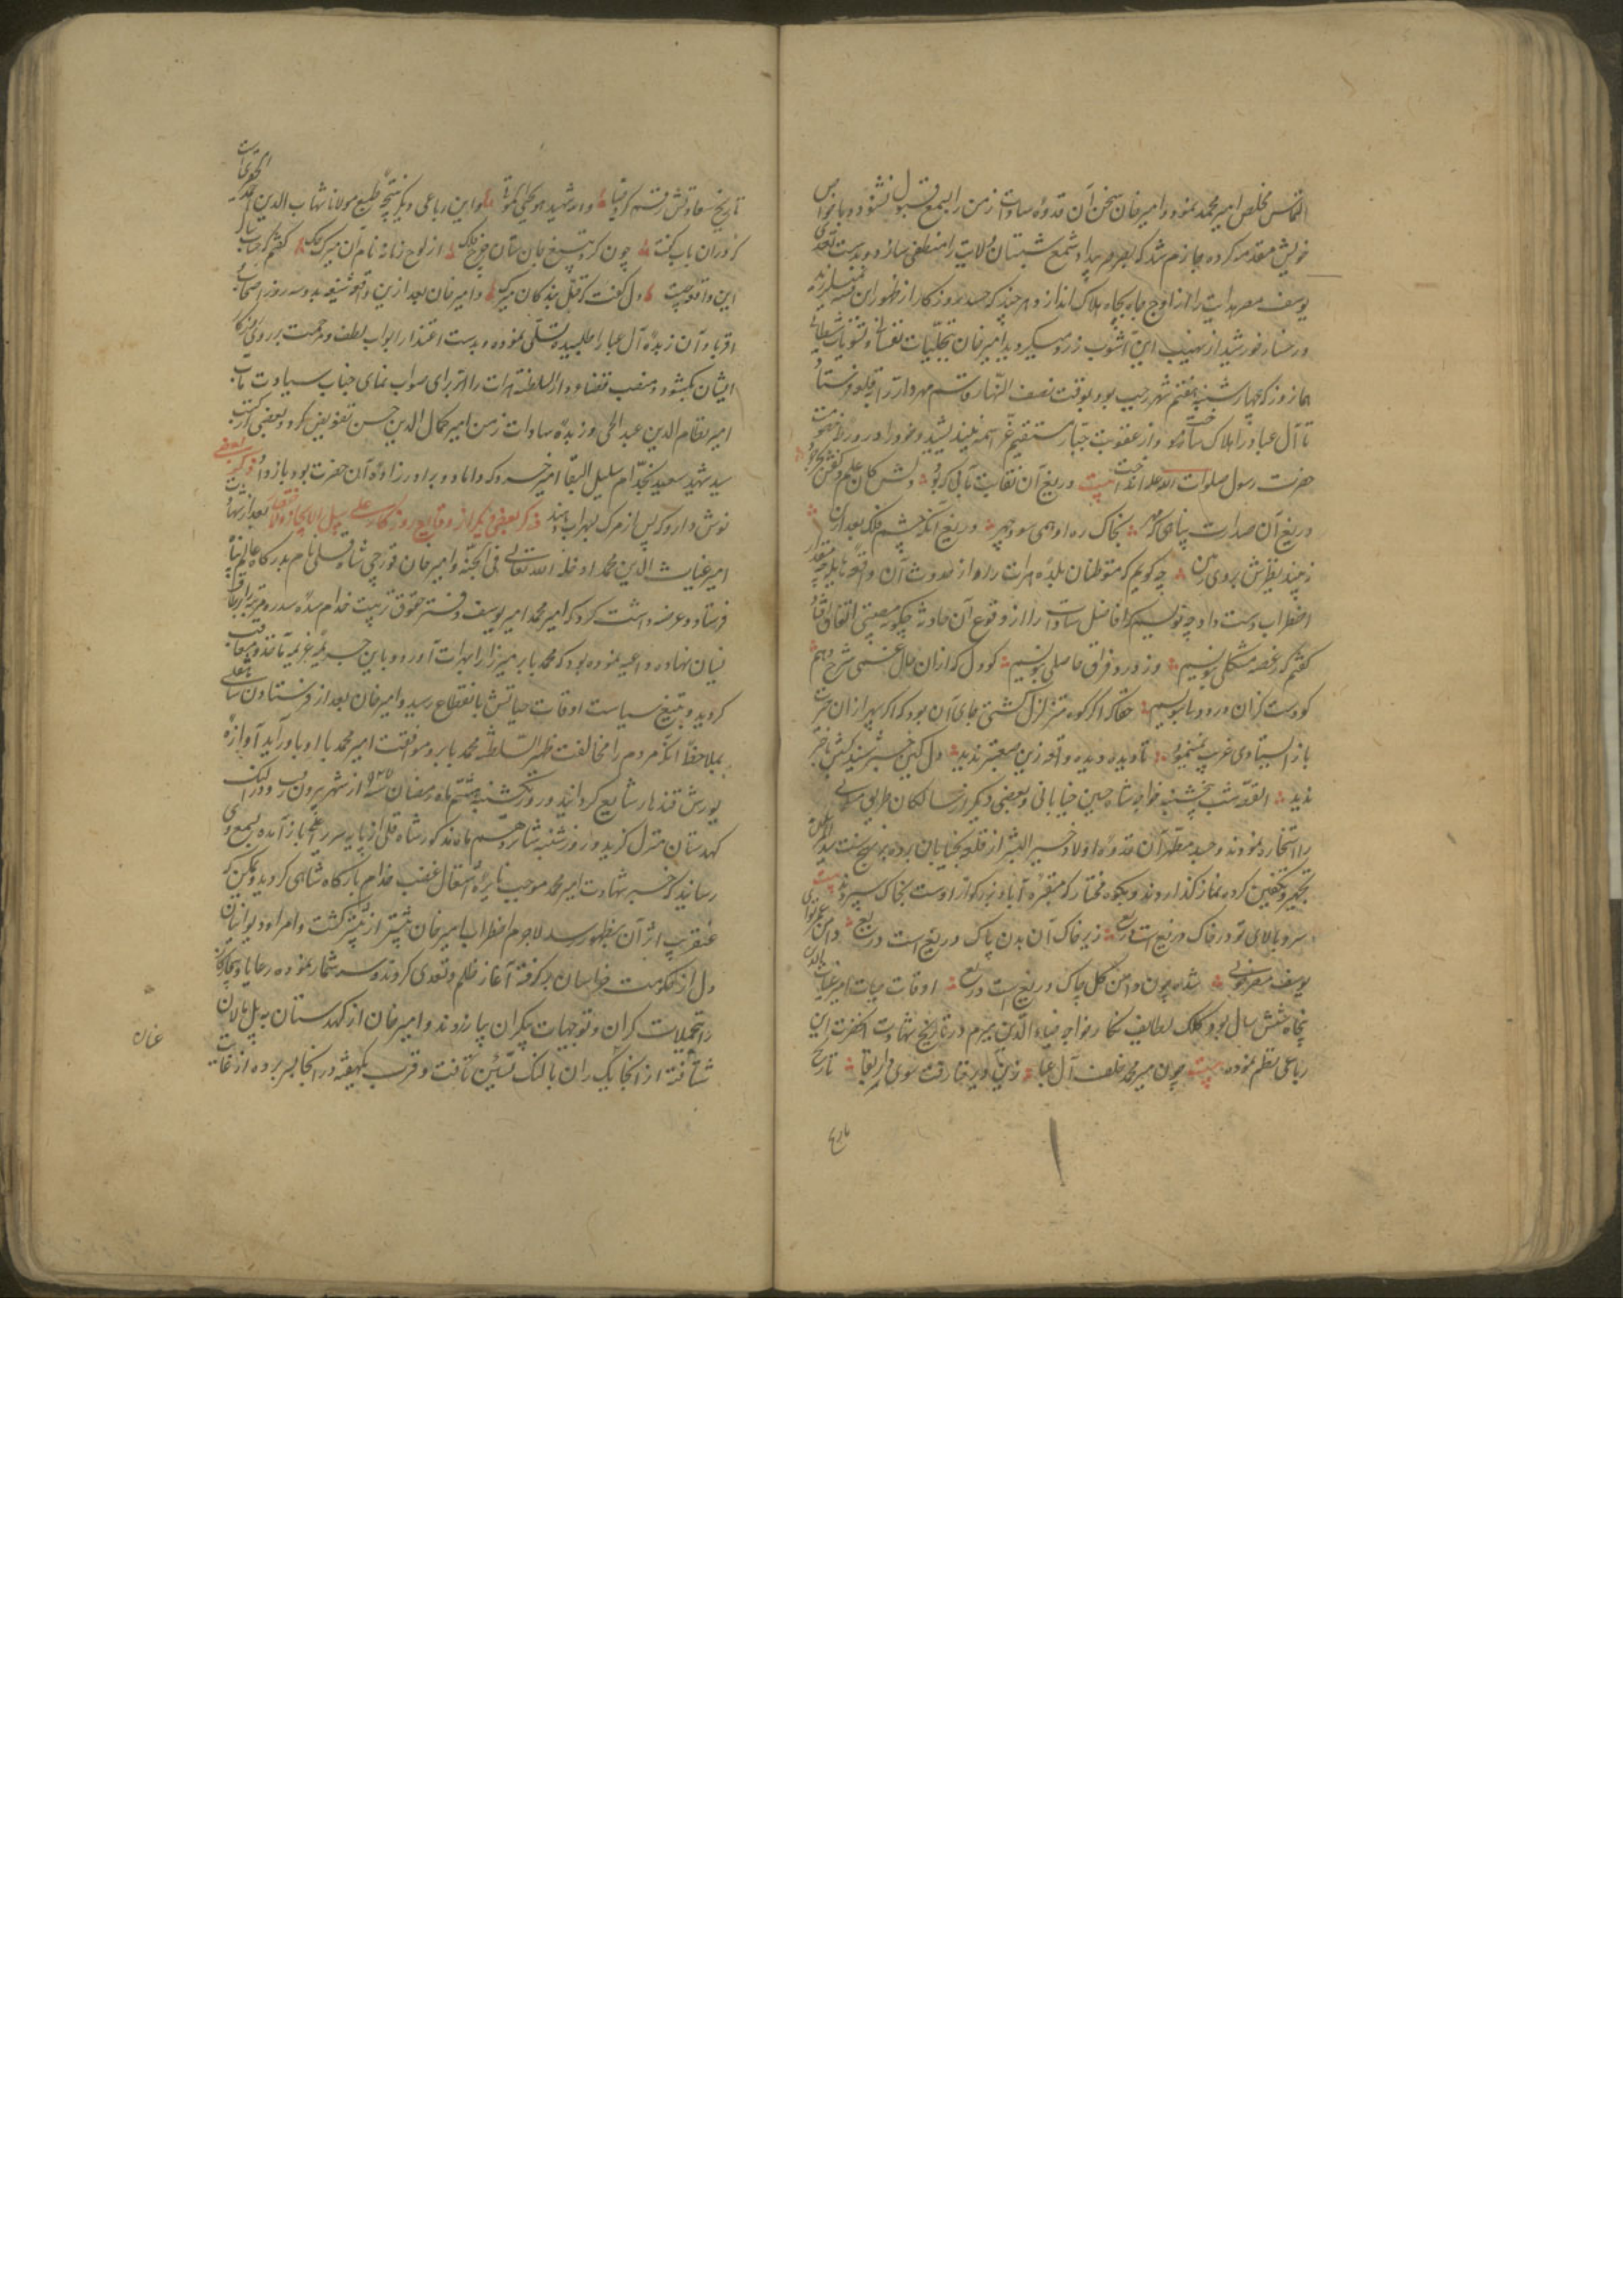 التماس مخلص امیر محمد نمود و امیرخان سخن آن قدوه سادات زمن را بسمع قبول نشنوده با خواص
خویش مقدمه کرده جازم شد که بصرصر بیداد شمع شبستان ولایت را منطفی سازد و بدست تعدی
یوسف مصر هدایت را از اوج جاه بچاه هلاک اندازد و هرچند که جسد روزکار از ظهور این فتنه میلرزید
و رخسار خورشید از نهیب این آشوب زرد میکردید امیرخان بتخیلات نفسانی و تسویلات شیطانی
هما نروز که چهارشنبه هفتم شهر رجب بود بوقت نصف النهار قاسم مهردار را بقلعه فرستاد
تا آل عبا را هلاک ساخت و از عقوبت جبار منتقم عز اسمه نیندیشید و خود را در ورطه عقوبت
حضرت رسول صلوات الله علیه انداخت بیت دریغ آن نقابت مآبی که بود دلش کان علم و کفش بحر جود
دریغ آن صدارت پناهی که مهر بخاک ره او همی سود چهر دریغ آنکه چشم فلک بعد ازین
نه بیند نظیرش بروی زمین چه کویم که متوطنان بلده هرات را از حدوث آن واقعه هایله چه مقدار
اضطراب دست داد و چه نویسم که افاضل سادات را از وقوع آن حادثه چکونه مصیبتی اتفاق افتاد
کفتم که ز غصه مشکلی بنویسم وز درد فراق حاصلی بنویسم کو دل که ازان ملال غمی شرح دهم
کو دست کزان درد دلی بنویسم حقا که اگر کوه متزلزل کشتی جای آن بود که اکر سپهر از ان حرکت
باز ایستادی غریب ننمودی تا دیده دیده واقعه زین صعبتر ندید دل کین خبر شنید کسش با خبر
ندید القصه شب پنجشنبه خواجه شاه حسین خیابانی و بعضی دیکر از سالکان طریق مسلمانی
را استخار نمودند و جسد مطهر آن قدوه اولاد خیر البشر از قلعه بخیابان برده بر نهج سنت سید المرسلین
تجهیز و تکفین کرده نماز گذاردند و بکوه مختار که مقبره آباء بزرکوار اوست بخاک سپردند بیت
سرو بالای تو در خاک دریغ است دریغ زیر خاک آن بدن پاک دریغ است دریغ دامن عمر تو ای
یوسف مصر خوبی شده چون دامن کل چاک دریغ است دریغ اوقات حیات امیر غیاث الدین
پنجاه شش سال بود و کلک لطایف نکار خواجه ضیاء الدین میرم در تاریخ شهادت آنحضرت این
رباعی نظم نموده بیت چون میر محمد خلف آل عبا زین دیر فنا رفت سوی دار بقا تاریخ
تاریخ
تاریخ سعادتش رقم کرد قضا والله شهید هو یحیی الموتی و این رباعی دیکر نتیجه طبع مولانا شهاب الدین احمد الحقیری است
که دران باب کفته چون کرد بتیغ جان ستان چرخ فلک از لوح زمانه نام آن میرک حک کفتم که حساب
این واقعه چیست دل کفت که قتل بندکان میرک و امیرخان بعد ازین واقعه شنیعه بدو سه روز اصحاب
اقربا و آن زبده آل عبا را طلبیده تسلی نمود و بدست اعتذار ابواب لطف و مرحمت بر روی روزکار
ایشان بکشود و منصب قضاء دار السلطنه هرات را برای صواب نمای جناب سیادت مآب
امیر نظام الدین عبد الحی و زبده سادات زمن امیر کمال الدین حسن تفویض کرد و بعضی از کتب
سید شهید سعید بخدام سلیل النقبا امیر خسرو که داماد و برادرزاده آن حضرت بود باز داد
نوش دارو که پس از مرگ بسهراب دهند ذکر بعضی دیگر از وقایع روزکار علی سبیل الایجاز والاختصار بعد از شهادت
امیر غیاث الدین محمد ادخله الله تعالی فی الجنه امیرخان قورچی شاه قلی نام بدرکاه عالم پناه
فرستاد و عرضه داشت کرد که امیر محمد امیر یوسف دفتر حقوق تربیت خدام سده سدره مرتبه را بر طاق
نسیان نهاده داعیه نموده بود که محمد بابر میرزا را بهرات آورد و باین جریمه عزیمه مأخوذ و معاقب
کردید و بتیغ سیاست اوقات حیاتش بانقطاع رسید و امیرخان بعد از فرستادن شاه قلی
بملاحظه آنکه مردم را مخالفت ظهیر السلطنه محمد بابر و موافقت امیر محمد با او باور آید آوازه
یورش قندهار شایع کردانید و روز یکشنبه هشتم ماه رمضان سنه ۹۲۷ از شهر بیرون رفت و در النک
کهدستان منزل کزید و روز شنبه شانزدهم ماه مذکور شاه قلی از پایه سریر اعلی باز آمده بسمع وی
رسانید که خبر شهادت امیر محمد موجب نایره اشتعال غضب خدام بارکاه شاهی کردید و ممکن که
عنقریب اثر آن بظهور رسد لاجرم اضطراب امیرخان بیشتر از پیشتر کشت و امراء دیوانیان
دل از حکومت خراسان برکرفته آغاز ظلم و تعدی کردند و سه شمار نموده رعایا و بیچارکان
را تحمیلات کران و توجیهات بیکران پا زدند و امیرخان از کهدستان به پل مالان
شتافته از آنجا یک ران بالنک نشین تافت و قرب یکهفته در آنجا بسر برده از غایت
غان